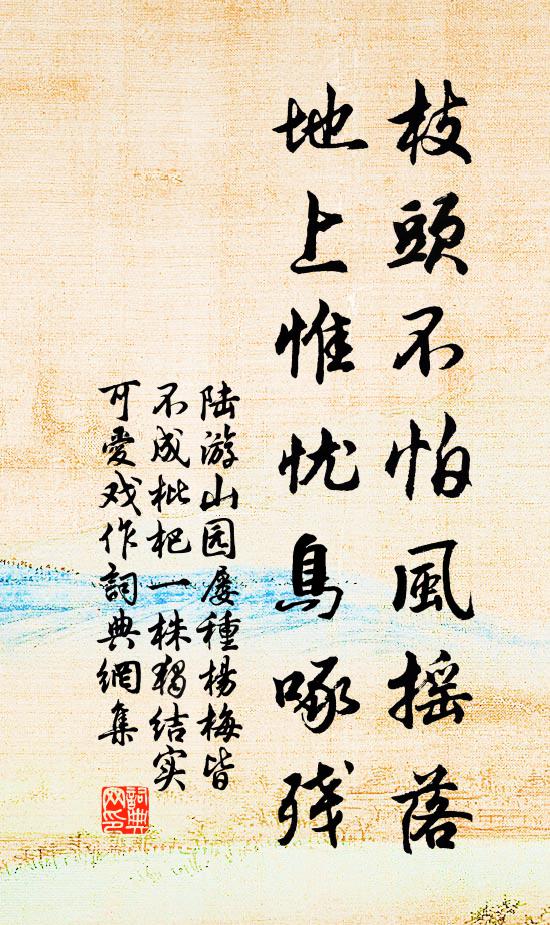 枝頭不怕風摇落
地上惟忧鳥啄残
陆游山园屡種楊梅皆
不成枇杷一株独结实
可愛戏作詞典網集
詞典
网印